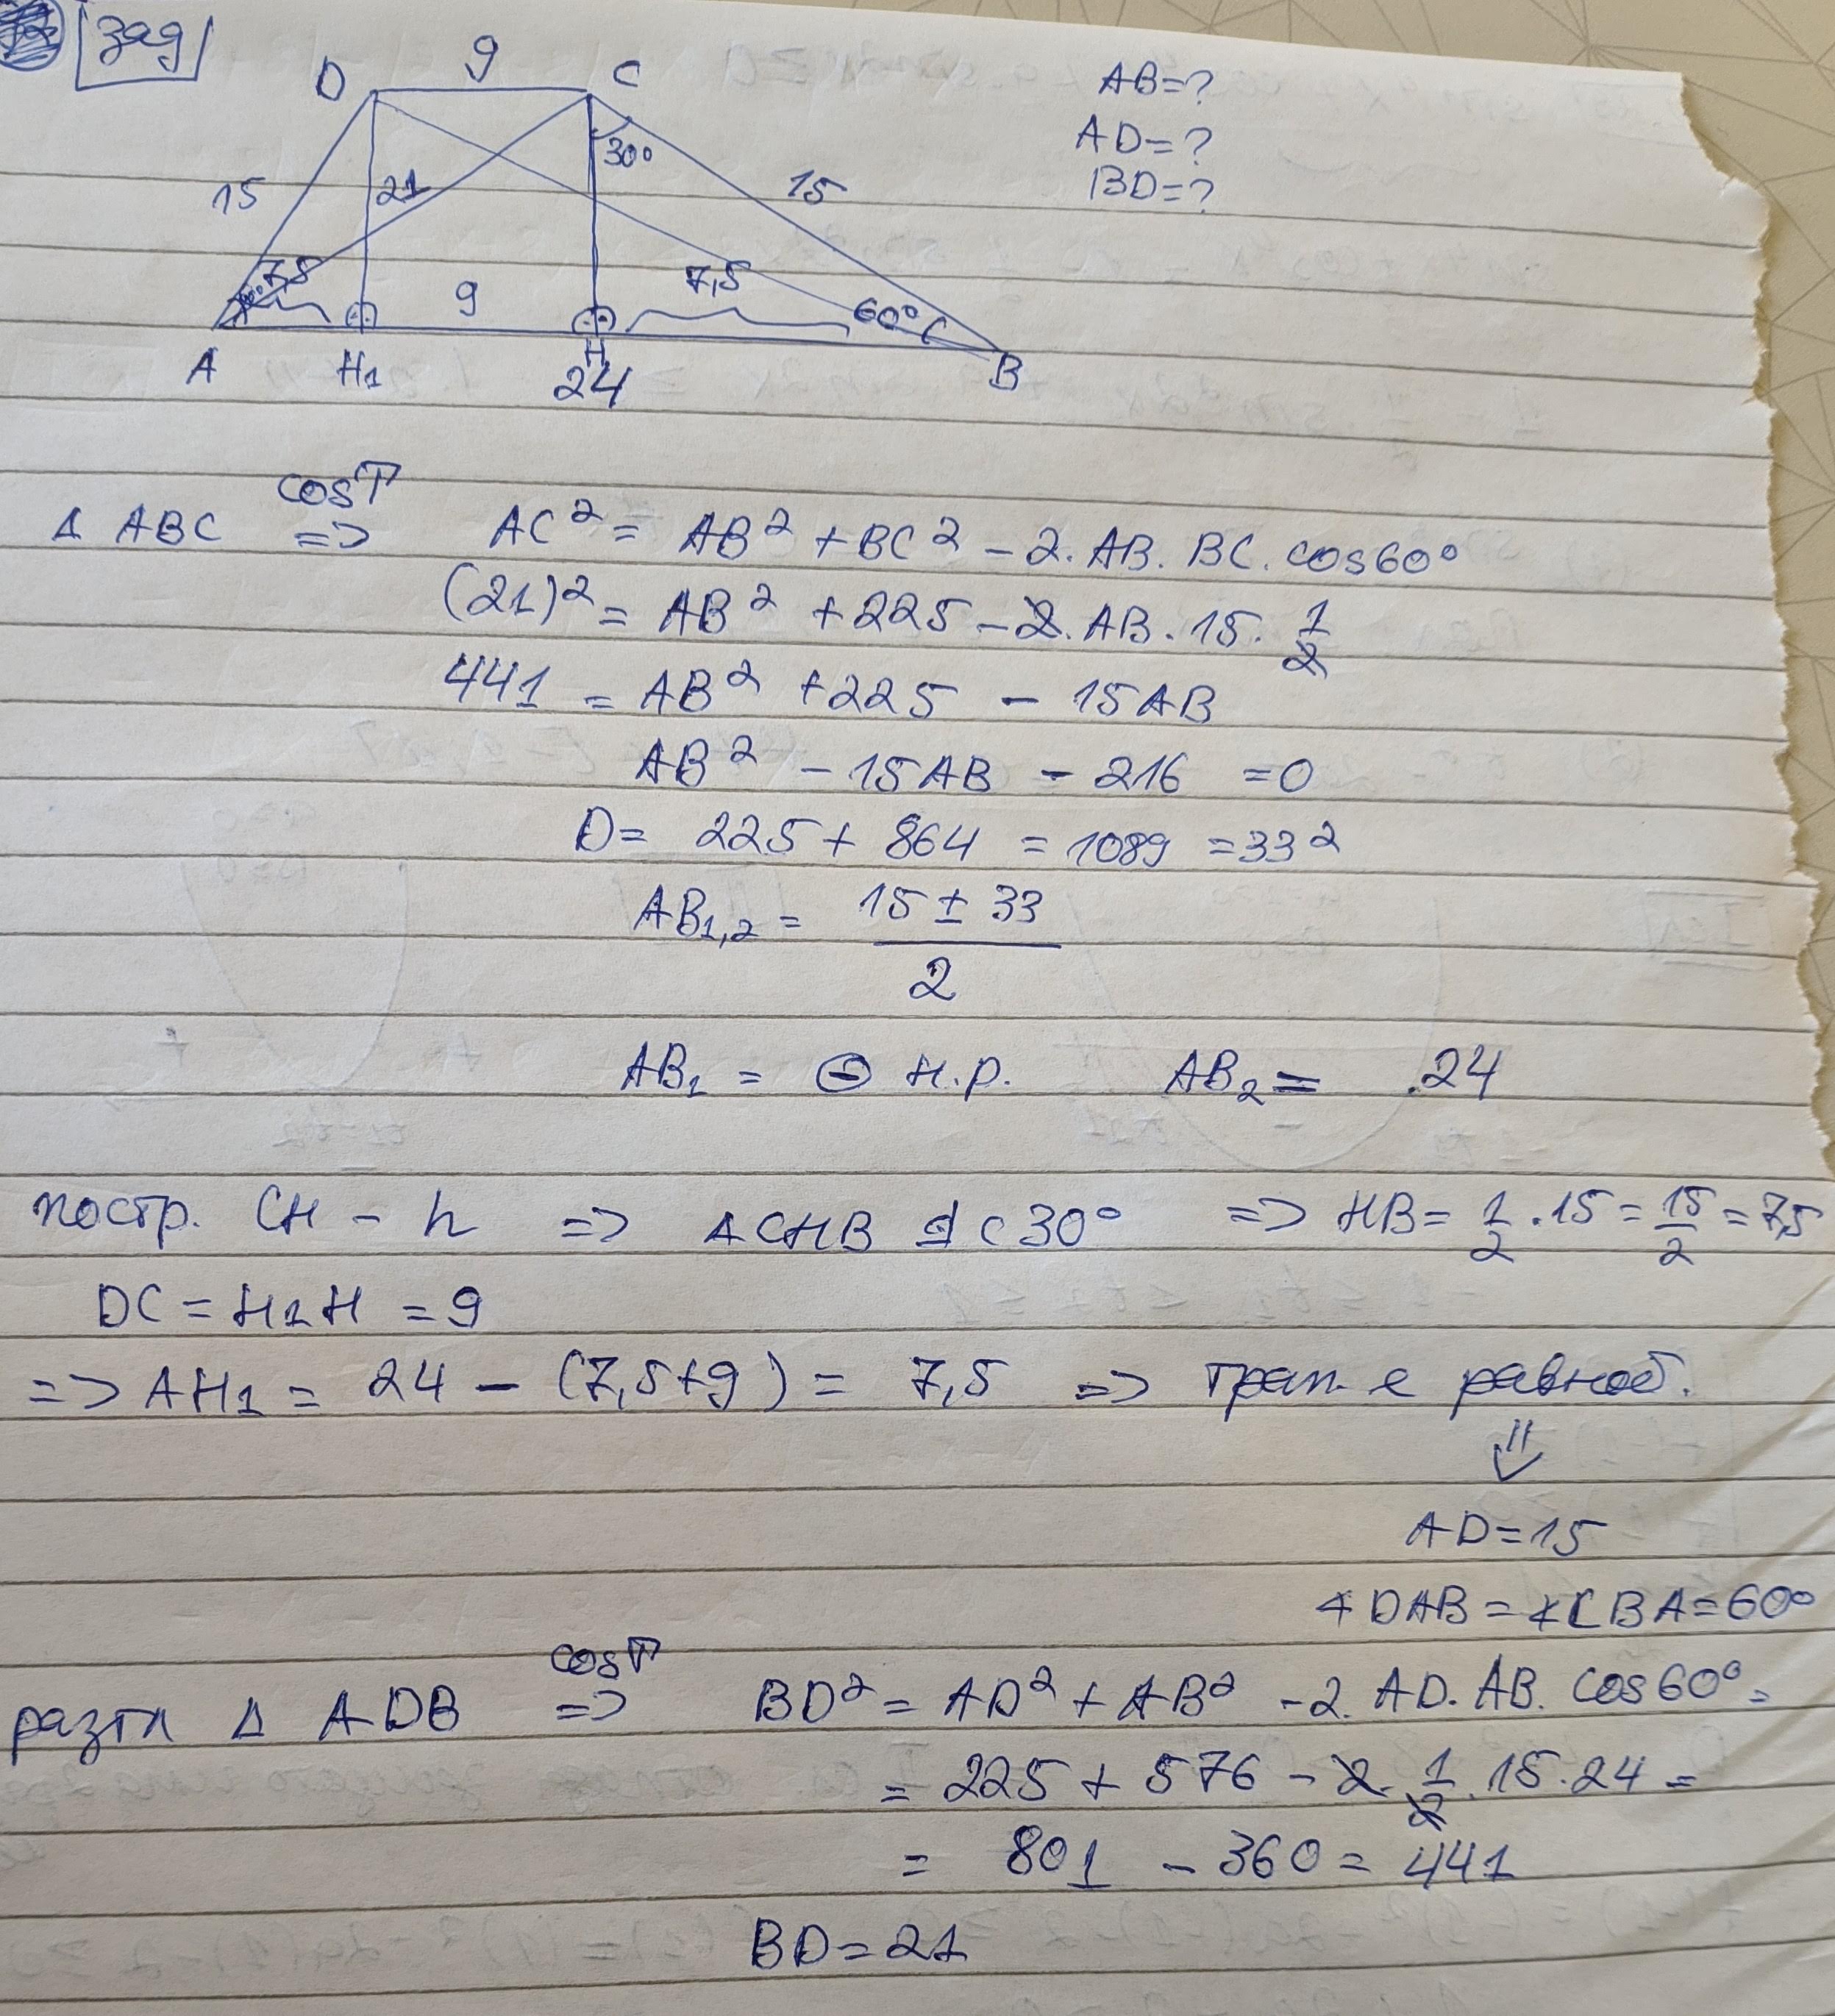 зад
D 9 C
AB=?
AD=?
BD=?
30°
15 21 15
7,5 9 7,5 60°
A H₁ H B
24
Δ ABC cosТ => AC² = AB² + BC² - 2. AB. BC. cos60°
(21)² = AB² + 225 - 2. AB. 15. 1/2
441 = AB² + 225 - 15AB
AB² - 15AB - 216 = 0
D = 225 + 864 = 1089 = 33²
AB₁,₂ = (15 ± 33)/2
AB₁ = ⊖ н.р. AB₂ = 24
постр. CH - h => Δ CHB ⊥ с 30° => HB = 1/2 . 15 = 15/2 = 7,5
DC = H₁H = 9
=> AH₁ = 24 - (7,5+9) = 7,5 => трап. е равноб.
⇓
AD=15
∢DAB = ∢CBA = 60°
разгл Δ ADB cosТ => BD² = AD² + AB² - 2. AD. AB. cos60° =
= 225 + 576 - 2. 1/2 . 15. 24 =
= 801 - 360 = 441
BD = 21